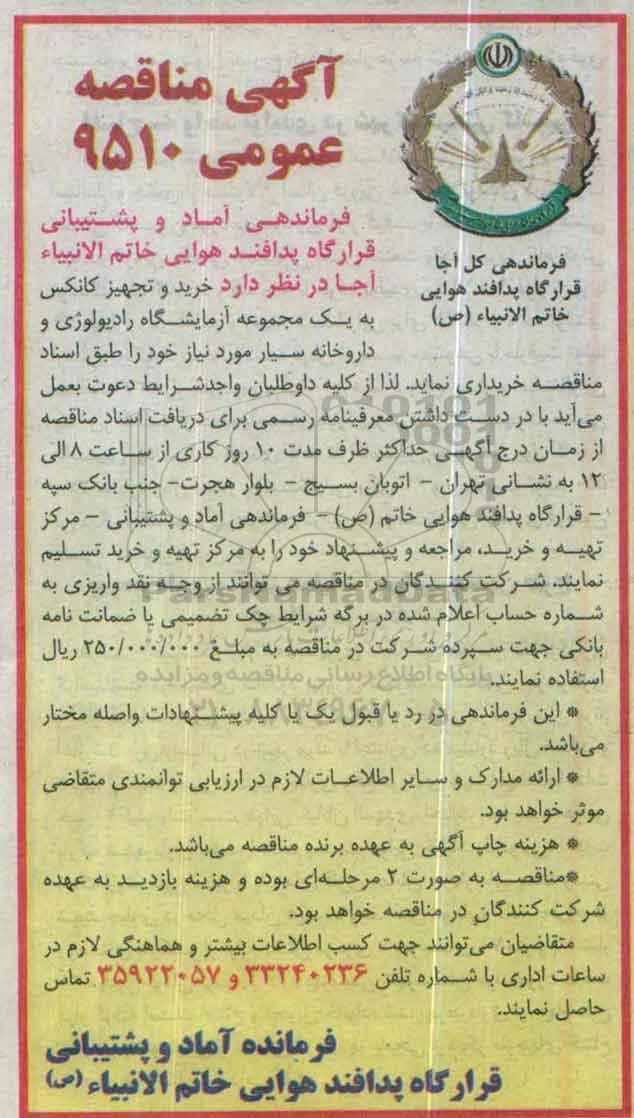 آگهی مناقصه
عمومی ۹۵۱۰
فرماندهی کل آجا
قرارگاه پدافند هوایی
خاتم الانبیاء (ص)
فرماندهی آماد و پشتیبانی
قرارگاه پدافند هوایی خاتم الانبیاء
آجا در نظر دارد خرید و تجهیز کانکس
به یک مجموعه آزمایشگاه رادیولوژی و
داروخانه سیار مورد نیاز خود را طبق اسناد
مناقصه خریداری نماید. لذا از کلیه داوطلبان واجدشرایط دعوت بعمل
می‌آید با در دست داشتن معرفینامه رسمی برای دریافت اسناد مناقصه
از زمان درج آگهی حداکثر ظرف مدت ۱۰ روز کاری از ساعت ۸ الی
۱۲ به نشانی تهران - اتوبان بسیج - بلوار هجرت- جنب بانک سپه
- قرارگاه پدافند هوایی خاتم (ص) - فرماندهی آماد و پشتیبانی - مرکز
تهیه و خرید، مراجعه و پیشنهاد خود را به مرکز تهیه و خرید تسلیم
نمایند. شرکت کنندگان در مناقصه می توانند از وجه نقد واریزی به
شماره حساب اعلام شده در برگه شرایط چک تضمیمی یا ضمانت نامه
بانکی جهت سپرده شرکت در مناقصه به مبلغ ۲۵۰/۰۰۰/۰۰۰ ریال
استفاده نمایند.
* این فرماندهی در رد یا قبول یک یا کلیه پیشنهادات واصله مختار
می‌باشد.
* ارائه مدارک و سایر اطلاعات لازم در ارزیابی توانمندی متقاضی
موثر خواهد بود.
* هزینه چاپ آگهی به عهده برنده مناقصه می‌باشد.
*مناقصه به صورت ۲ مرحله‌ای بوده و هزینه بازدید به عهده
شرکت کنندگان در مناقصه خواهد بود.
متقاضیان می‌توانند جهت کسب اطلاعات بیشتر و هماهنگی لازم در
ساعات اداری با شماره تلفن ۳۳۲۴۰۲۳۶ و ۳۵۹۲۲۰۵۷ تماس
حاصل نمایند.
فرمانده آماد و پشتیبانی
قرارگاه پدافند هوایی خاتم الانبیاء (ص)
ParsNamadData
پایگاه اطلاع رسانی مناقصه و مزایده